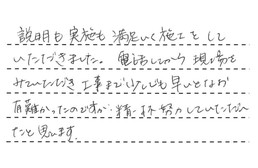 説明も実施も満足いく施工をして
いただきました。電話してから現場を
みていただき工事まで少しでも早いとなお
有難かったのですが、精一杯努力していただい
たと思います。